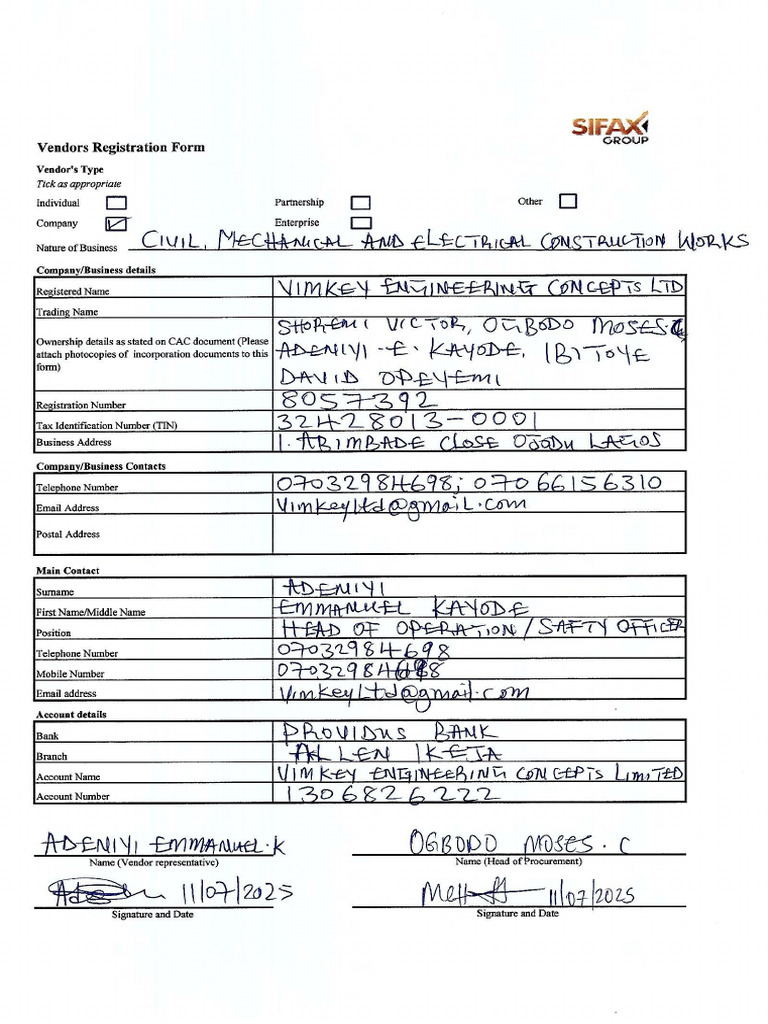 SIFAX
GROUP
Vendors Registration Form
Vendor's Type
Tick as appropriate
Individual Partnership Other
Company Enterprise
Nature of Business CIVIL, MECHANICAL AND ELECTRICAL CONSTRUCTION WORKS
Company/Business details
Registered Name VIMKEY ENGINEERING CONCEPTS LTD
Trading Name
Ownership details as stated on CAC document (Please
attach photocopies of incorporation documents to this
form)
SHOREMI VICTOR, OGBODO MOSES.C
ADENIYI -E- KAYODE, IBITOYE
DAVID OPEYEMI
Registration Number 8057392
Tax Identification Number (TIN) 32428013-0001
Business Address 1. ARIMBADE CLOSE OJODU LAGOS
Company/Business Contacts
Telephone Number 07032984698; 07066156310
Email Address Vimkeyltd@gmail.com
Postal Address
Main Contact
Surname ADENIYI
First Name/Middle Name EMMANUEL KAYODE
Position HEAD OF OPERATION / SAFTY OFFICER
Telephone Number 07032984698
Mobile Number 07032984698
Email address VimkeyLtd@gmail.com
Account details
Bank PROVIDUS BANK
Branch ALLEN IKEJA
Account Name VIMKEY ENGINEERING CONCEPTS LIMITED
Account Number 1306826222
ADENIYI EMMANUEL.K OGBODO MOSES. C
Name (Vendor representative) Name (Head of Procurement)
11/07/2025 11/07/2025
Signature and Date Signature and Date